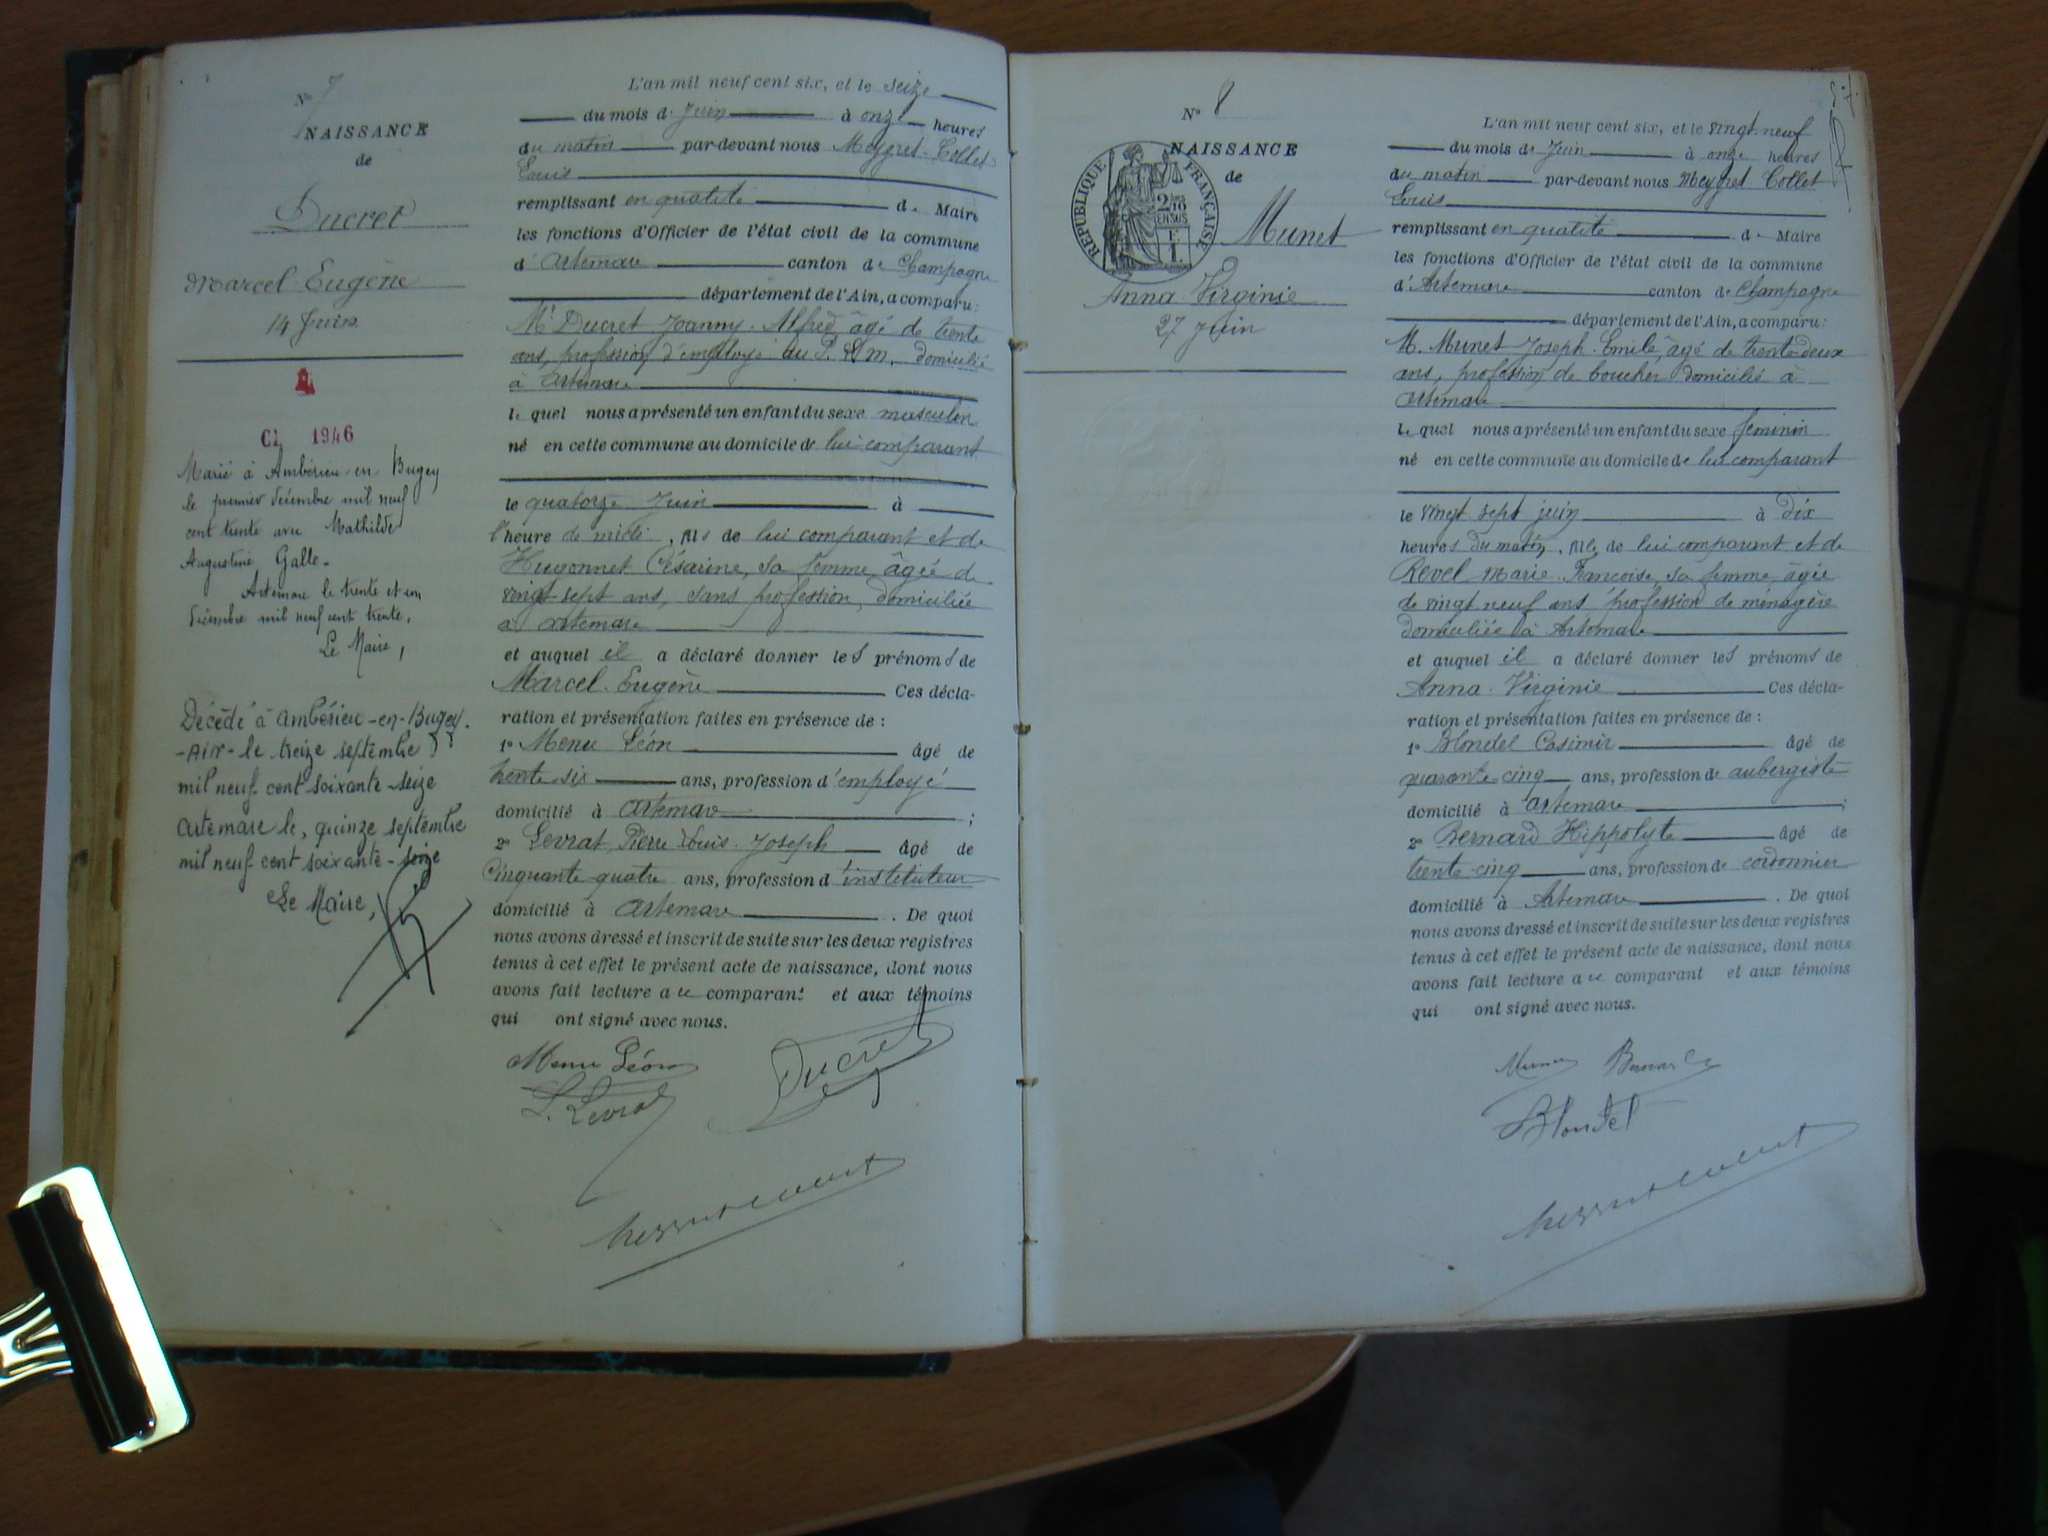 N° 7
NAISSANCE
de
Ducret
Marcel Eugène
14 Juin
CL 1946
Marié à Ambérieu-en-Bugey
le premier décembre mil neuf
cent trente avec Mathilde
Augustine Galle.
Artemare le trente et un
Décembre mil neuf cent trente,
Le Maire,
Décédé à Ambérieu-en-Bugey.
-Ain- le treize septembre
mil neuf cent soixante-seize
Artemare le, quinze septembre
mil neuf cent soixante-seize
Le Maire,
L'an mil neuf cent six, et le seize
du mois de Juin à onze heures
du matin par-devant nous Meygret-Collet
Louis
remplissant en qualité de Maire
les fonctions d'Officier de l'état civil de la commune
d'Artemare canton de Champagne
département de l'Ain, a comparu:
Mr Ducret Joanny-Alfred âgé de trente
ans, profession d'employé au P.L.M. domicilié
à Artemare
lequel nous a présenté un enfant du sexe masculin
né en cette commune au domicile de lui comparant
le quatorze Juin à
l'heure de midi, fils de lui comparant et de
Hugonnet Césarine, sa femme âgée de
vingt-sept ans, sans profession, domiciliée
à Artemare
et auquel il a déclaré donner les prénoms de
Marcel-Eugène Ces décla-
ration et présentation faites en présence de :
1° Menu Léon âgé de
trente-six ans, profession d'employé
domicilié à Artemare ;
2° Levrat, Pierre Louis-Joseph âgé de
cinquante-quatre ans, profession d'instituteur
domicilié à Artemare . De quoi
nous avons dressé et inscrit de suite sur les deux registres
tenus à cet effet le présent acte de naissance, dont nous
avons fait lecture au comparant et aux témoins
qui ont signé avec nous.
Menu Léon Ducret
L. Levrat
N° 8
NAISSANCE
de
RÉPUBLIQUE FRANÇAISE
2/10 EN SUS
Munet
Anna Virginie
27 Juin
L'an mil neuf cent six, et le vingt-neuf
du mois de Juin à onze heures
du matin par-devant nous Meygret Collet
Louis
remplissant en qualité de Maire
les fonctions d'Officier de l'état civil de la commune
d'Artemare canton de Champagne
département de l'Ain, a comparu:
M. Munet Joseph-Emile, âgé de trente-deux
ans, profession de boucher domicilié à
Artemare
lequel nous a présenté un enfant du sexe féminin
né en cette commune au domicile de lui comparant
le vingt sept juin à dix
heures du matin, fille de lui comparant et de
Revel Marie-Françoise, sa femme, âgée
de vingt neuf ans profession de ménagère
domiciliée à Artemare
et auquel il a déclaré donner les prénoms de
Anna-Virginie Ces décla-
ration et présentation faites en présence de :
1° Blondel Casimir âgé de
quarante cinq ans, profession de aubergiste
domicilié à Artemare ;
2° Bernard Hippolyte âgé de
trente-cinq ans, profession de cordonnier
domicilié à Artemare . De quoi
nous avons dressé et inscrit de suite sur les deux registres
tenus à cet effet le présent acte de naissance, dont nous
avons fait lecture au comparant et aux témoins
qui ont signé avec nous.
Munet Bernard
Blondel